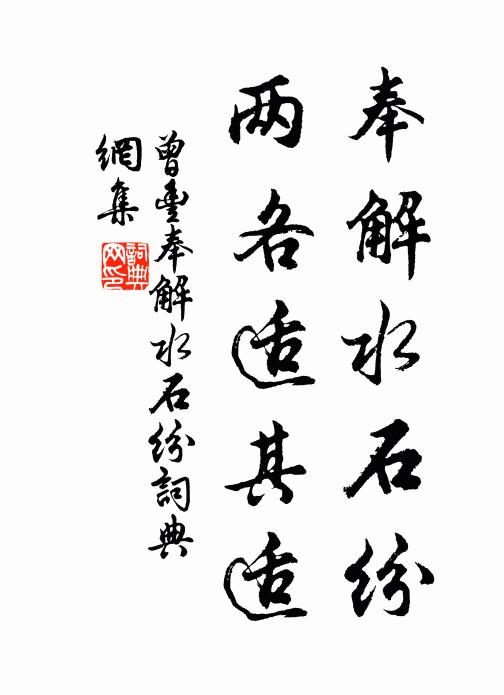 奉解水石纷
两各适其适
曾豊奉解水石纷詞典
網集
詞典网印